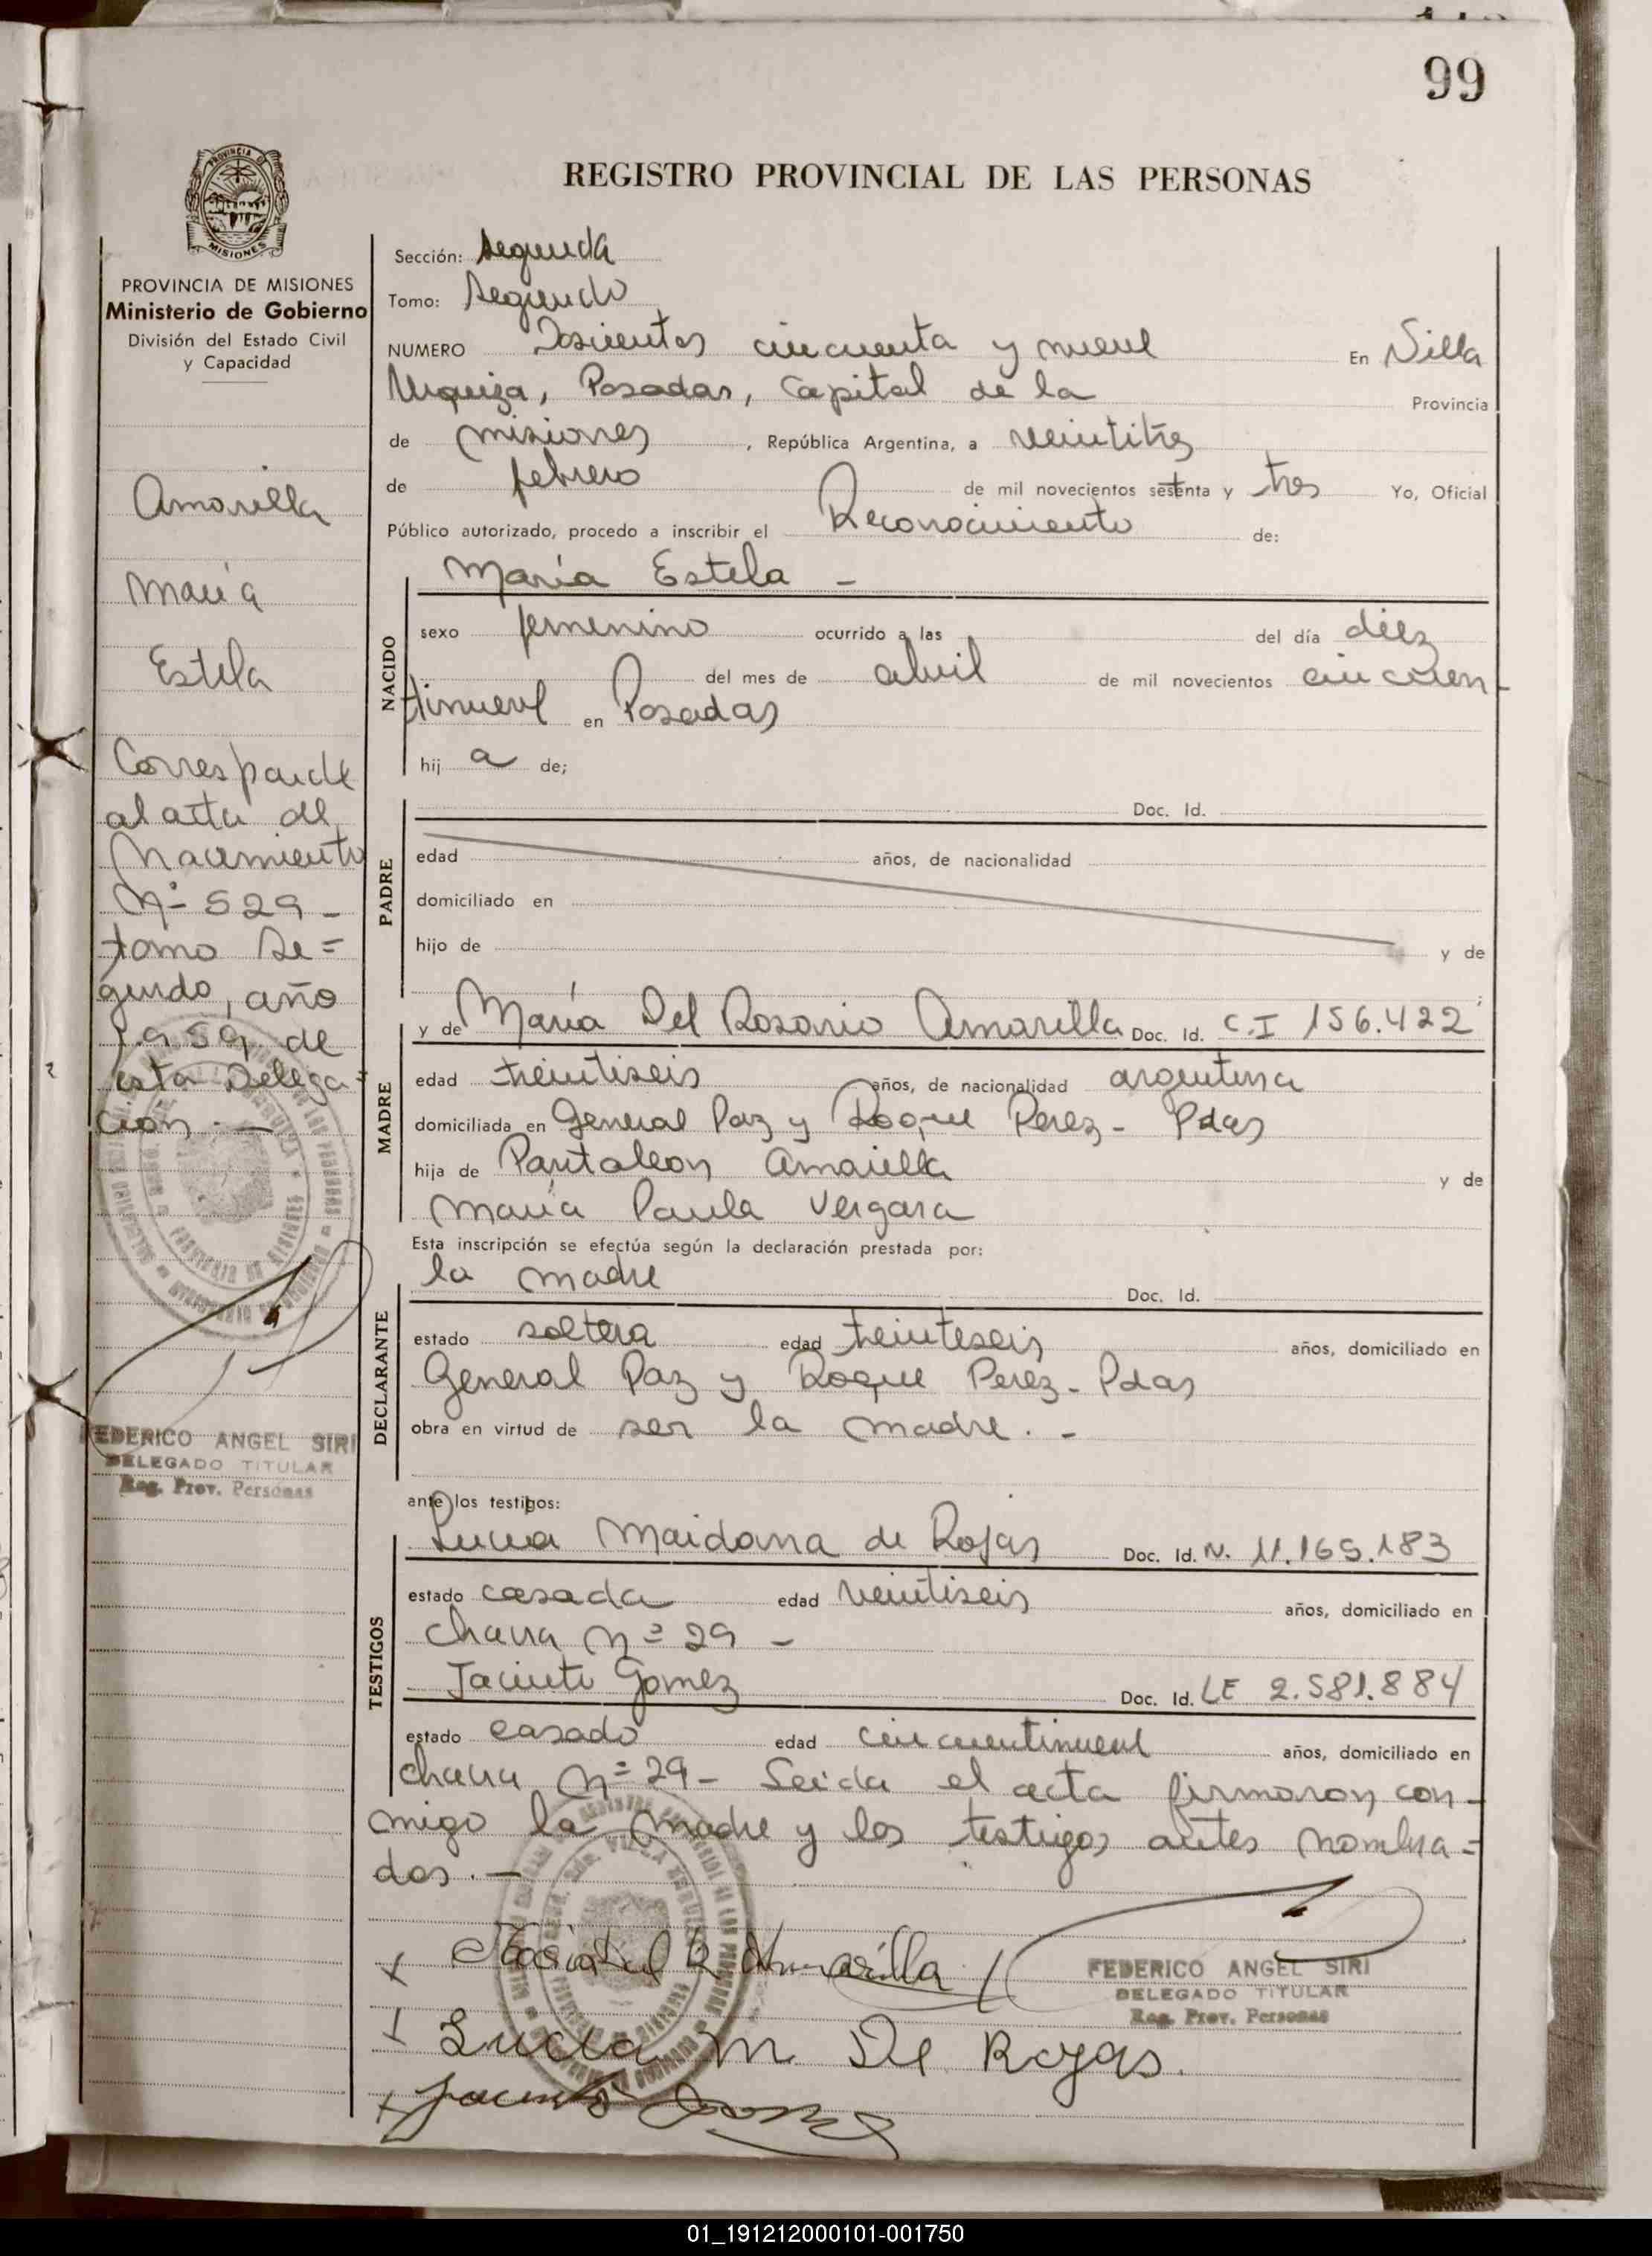 99
REGISTRO PROVINCIAL DE LAS PERSONAS
PROVINCIA DE
MISIONES
PROVINCIA DE MISIONES
Ministerio de Gobierno
División del Estado Civil
y Capacidad
Amarilla
María
Estela
Corresponde
al acta de
Nacimiento
Nº 529 -
tomo Se=
gundo, año
1959 de
esta Delega=
ción. —
FEDERICO ANGEL SIRI
DELEGADO TITULAR
Reg. Prov. Personas
Sección: Segunda
Tomo: Segundo
NUMERO Doscientos cincuenta y nueve En Villa
Urquiza, Posadas, Capital de la Provincia
de Misiones, República Argentina, a veintitres
de febrero de mil novecientos setenta y tres Yo, Oficial
Público autorizado, procedo a inscribir el Reconocimiento de:
María Estela -
NACIDO
sexo femenino ocurrido a las del día diez
del mes de abril de mil novecientos cincuen-
tinueve en Posadas
hij a de;
PADRE
Doc. Id.
edad años, de nacionalidad
domiciliado en
hijo de y de
MADRE
y de María Del Rosario Amarilla Doc. Id. C.I 156.422
edad treintiseis años, de nacionalidad argentina
domiciliada en General Paz y Roque Perez - Pdas
hija de Pantaleon Amarilla y de
María Paula Vergara
Esta inscripción se efectúa según la declaración prestada por:
DECLARANTE
la madre Doc. Id.
estado soltera edad treintiseis años, domiciliado en
General Paz y Roque Perez - Pdas
obra en virtud de ser la madre. -
ante los testigos:
TESTIGOS
Lucia Maidana de Rojas Doc. Id. N. 11.165.183
estado casada edad veintiseis años, domiciliado en
chacra Nº 29 -
Jacinto Gomez Doc. Id. LE 2.581.884
estado casado edad cincuentinueve años, domiciliado en
chacra Nº 29 - Leida el acta firmaron con-
migo la madre y los testigos antes nombra=
dos. —
R. Amarilla
FEDERICO ANGEL SIRI
DELEGADO TITULAR
Reg. Prov. Personas
Lucia M De Rojas.
Jacinto Gomez
01_191212000101-001750